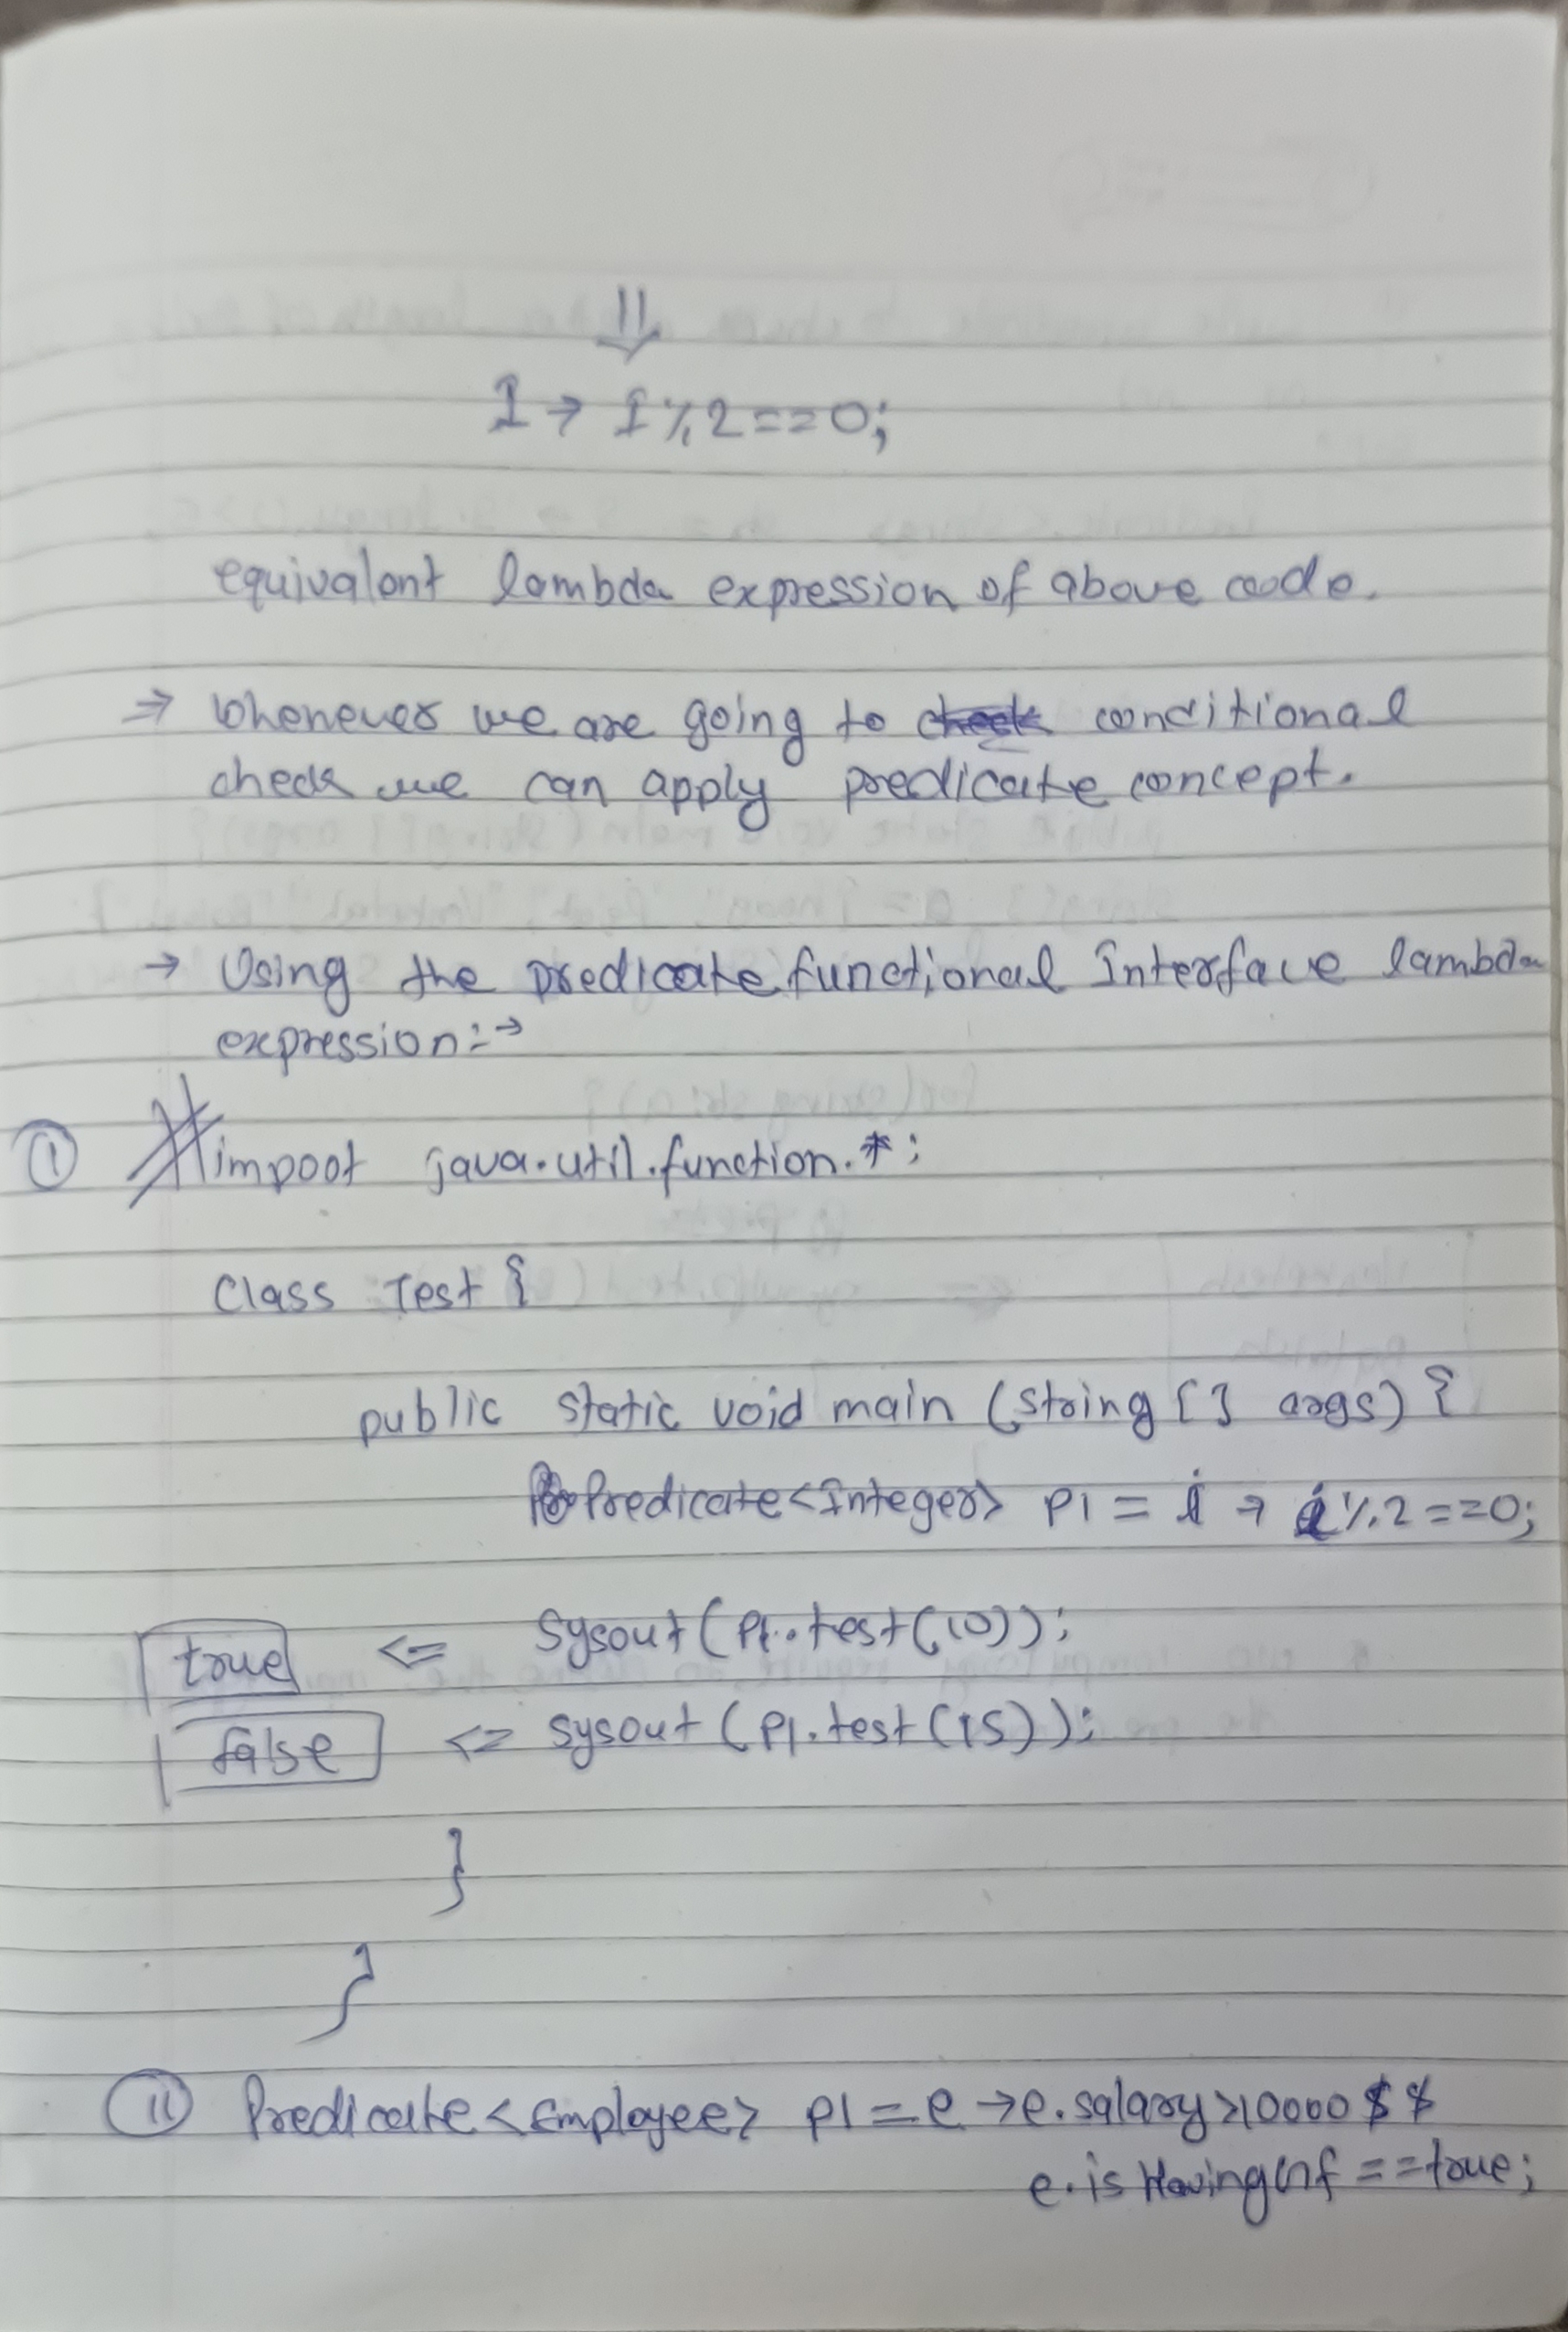 ⇓
I → I%2==0;
equivalent lambda expression of above code.
⇒ Whenever we are going to conditional
check we can apply predicate concept.
→ Using the predicate functional Interface lambda
expression:→
① import java.util.function.*;
Class Test {
public static void main (String [] args) {
Predicate<Integer> P1 = i → i%2==0;
true <= Sysout(P1.test(10));
false <= sysout (P1.test(15));
}
}
⑪ Predicate<Employee> p1 = e → e.salary>10000 $ $
e.isHavingGf ==true;